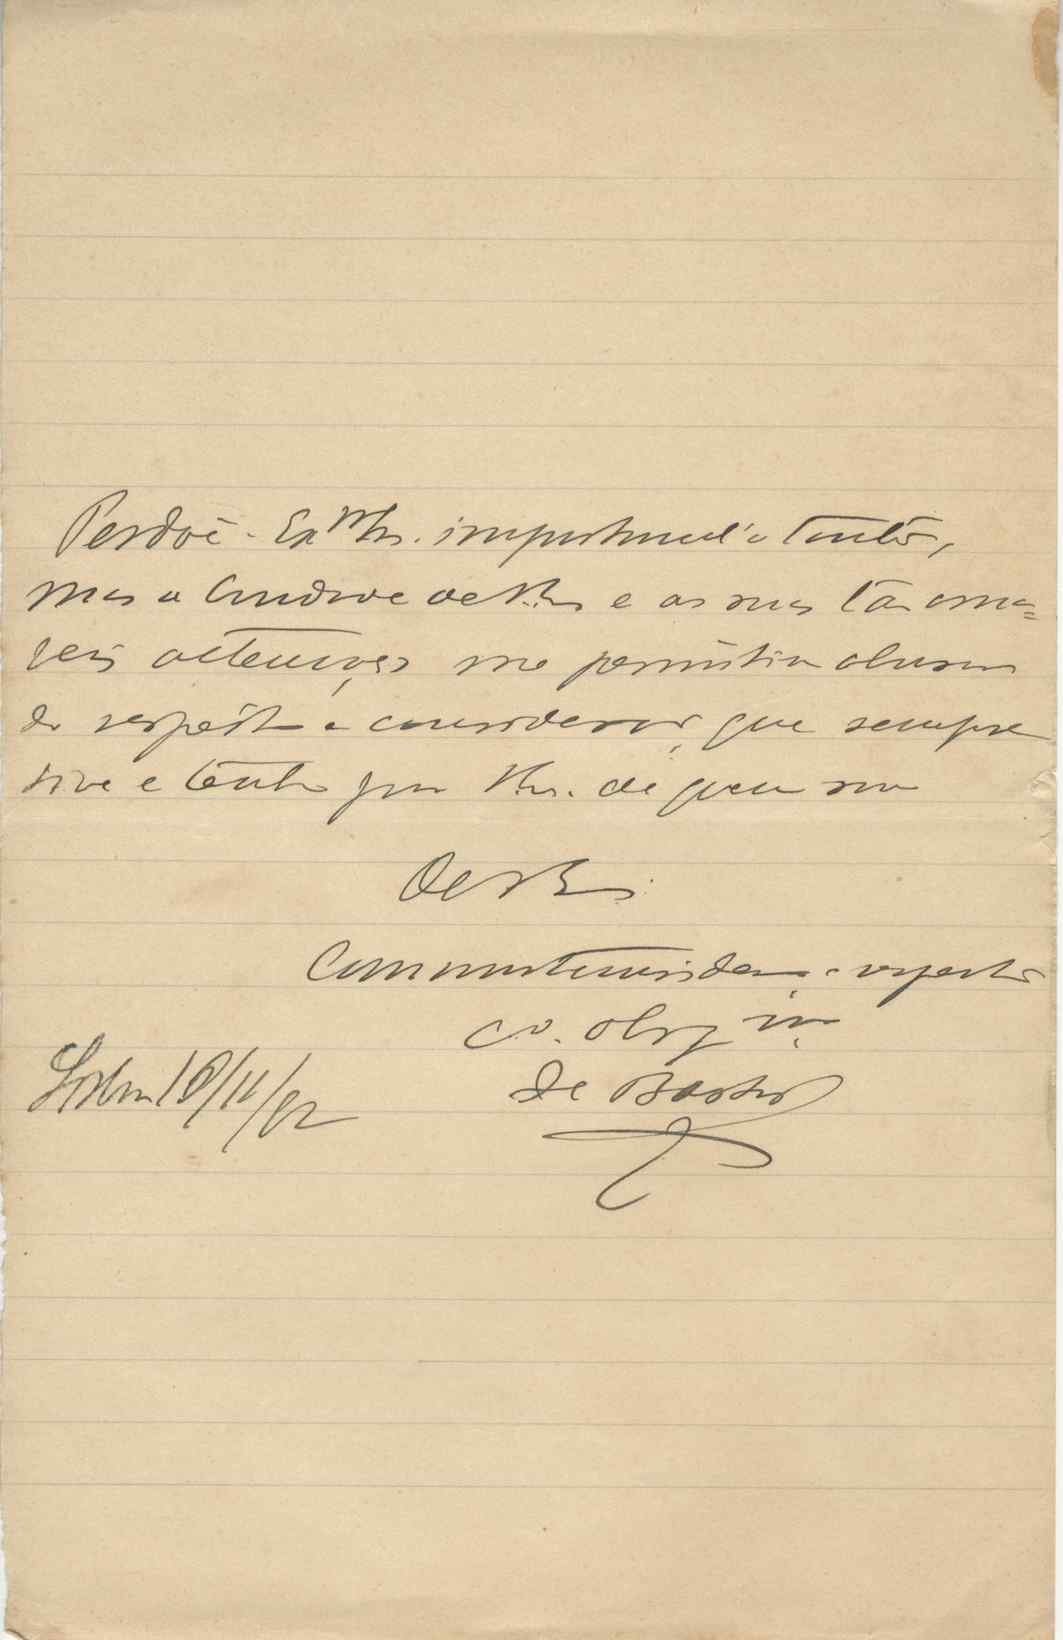 Perdôe Ex.mo Sr. importunal'o tanto,
mas a bondade de V. Exa e as suas tão ama=
veis attenções me permittir abusar
do respeito e consideração, que sempre
tive e tenho por V. Ex.a de quem sou
De V. Ex.a
com muita consideração e respeito
cr.o obrg.mo
de Bastos
Lisboa 18/11/92